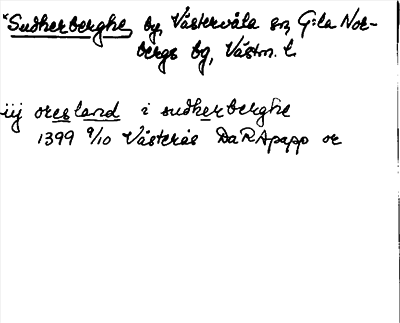 *Sudherberghe by, Västervåla sn, G:la Nor-
bergs bg, Västm. l.
iij øresland i sudherberghe
1399 9/10 Västerås DaRApapp or